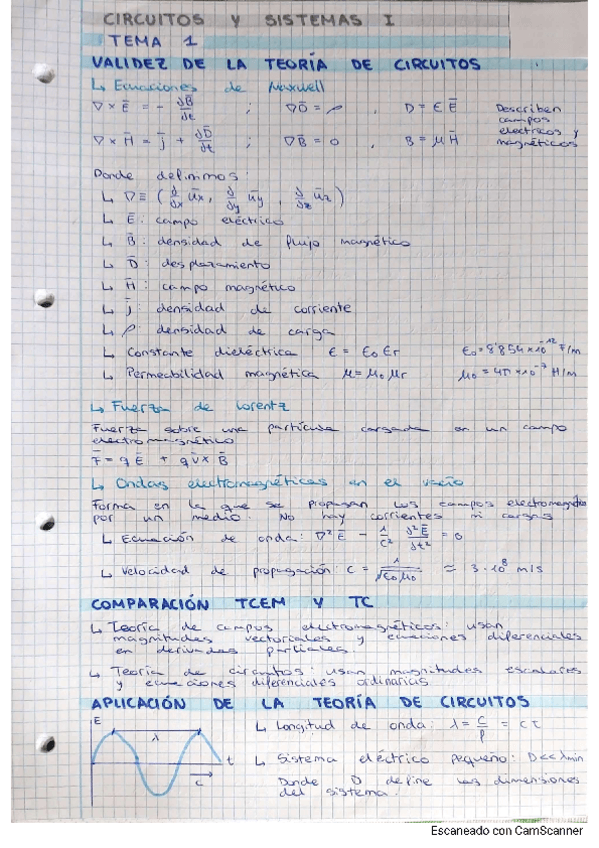 CIRCUITOS Y SISTEMAS I
TEMA 1
VALIDEZ DE LA TEORÍA DE CIRCUITOS
↳ Ecuaciones de Maxwell
∇ × Ē = - ∂B̄/∂t ; ∇D̄ = ρ , D = ε Ē Describen campos eléctricos y magnéticos
∇ × H̄ = j̄ + ∂D̄/∂t ; ∇B̄ = 0 , B = μ H̄
Donde definimos:
↳ ∇ ≡ (∂/∂x ūx, ∂/∂y ūy, ∂/∂z ūz)
↳ Ē: campo eléctrico
↳ B̄: densidad de flujo magnético
↳ D̄: desplazamiento
↳ H̄: campo magnético
↳ j̄: densidad de corriente
↳ ρ: densidad de carga
↳ Constante dieléctrica ε = ε0 εr ε0 = 8'854×10⁻¹² F/m
↳ Permeabilidad magnética μ = μ0 μr μ0 = 4π×10⁻⁷ H/m
↳ Fuerza de Lorentz
Fuerza sobre una partícula cargada en un campo
electromagnético
F̄ = q Ē + q v̄ × B̄
↳ Ondas electromagnéticas en el vacío
Forma en la que se propagan los campos electromagnéticos
por un medio. No hay corrientes ni cargas
↳ Ecuación de onda: ∇² Ē - 1/c² ∂²Ē/∂t² = 0
↳ Velocidad de propagación: c = 1/√ε0μ0 ≈ 3·10⁸ m/s
COMPARACIÓN TCEM Y TC
↳ Teoría de campos electromagnéticos: usan
magnitudes vectoriales y ecuaciones diferenciales
en derivadas parciales.
↳ Teoría de circuitos: usan magnitudes escalares
y ecuaciones diferenciales ordinarias
APLICACIÓN DE LA TEORÍA DE CIRCUITOS
E
λ
t
c
↳ Longitud de onda: λ = c/f = cτ
↳ Sistema eléctrico pequeño: D<<λmin
Donde D define las dimensiones
del sistema.
Escaneado con CamScanner